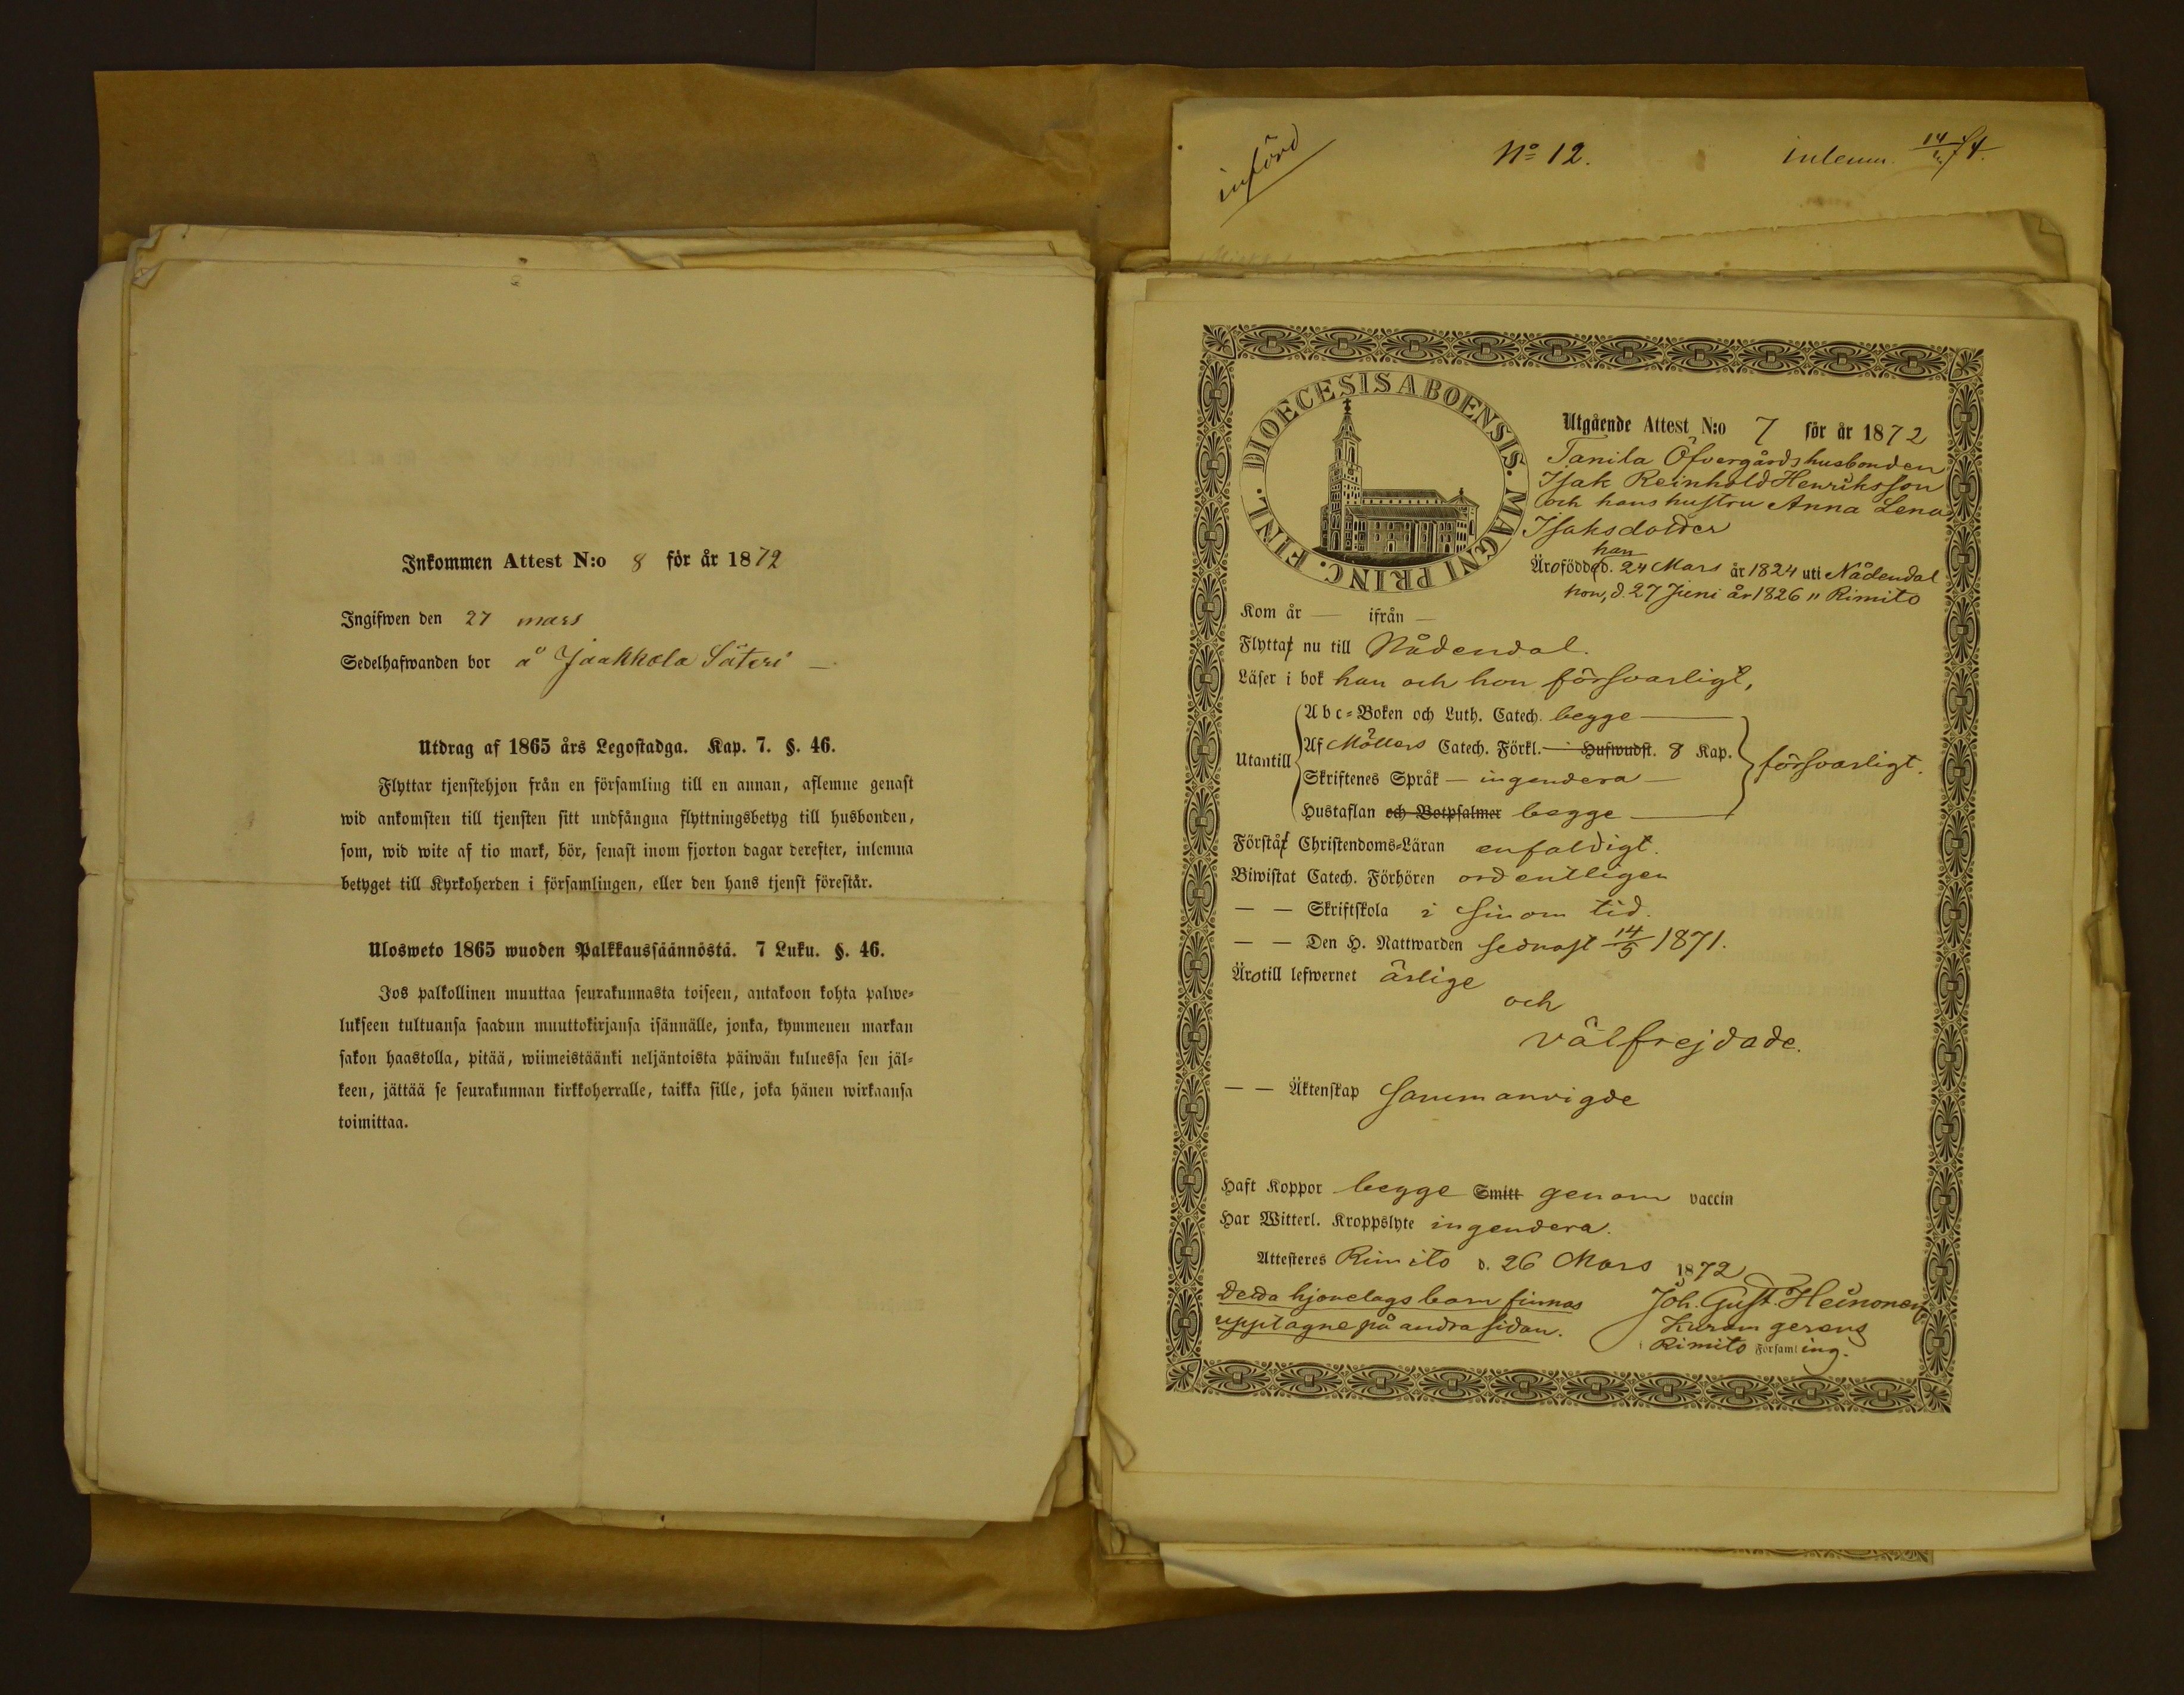 Inkommen Attest N:o 8 för år 1872
Ingifwen den 27 mars
Sedelhafwanden bor å Jaakkola Säteri —
Utdrag af 1865 års Legostadga. Kap. 7. §. 46.
Flyttar tjenstehjon från en församling till en annan, aflemne genast
wid ankomsten till tjensten sitt undfångna flyttningsbetyg till husbonden,
som, wid wite af tio mark, bör, senast inom fjorton dagar derefter, inlemna
betyget till Kyrkoherden i församlingen, eller den hans tjenst förestår.
Ulosweto 1865 wuoden Palkkaussäännöstä. 7 Luku. §. 46.
Jos palkollinen muuttaa seurakunnasta toiseen, antakoon kohta palwe=
lukseen tultuansa saadun muuttokirjansa isännälle, jonka, kymmenen markan
sakon haastolla, pitää, wiimeistäänki neljäntoista päiwän kuluessa sen jäl=
keen, jättää se seurakunnan kirkkoherralle, taikka sille, joka hänen wirkaansa
toimittaa.
införd
No 12.
inlemn. 14/4
DIOECESIS ABOENSIS. MAGNI PRINC. FINL.
Utgående Attest N:o 7 för år 1872
Tanila Öfvergårds husbonden
Isak Reinhold Henriksson
och hans hustru Anna Lena
Isaksdotter
han
Äro född d. 24 Mars år 1824 uti Nådendal
hon, d. 27 Juni år 1826 " Rimito
Kom år — ifrån —
Flytta nu till Nådendal.
Läser i bok han och hon försvarligt,
Utantill
Abc=Boken och Luth. Catech. begge —
Af Möllers Catech. Förkl. — Hufwudst. 8 Kap.
Skriftenes Språk — ingendera —
Hustaflan och Botpsalmer begge —
försvarligt.
Förstå Christendoms=Läran enfaldigt.
Biwistat Catech. Förhören ordentligen
— — Skriftskola i sinom tid.
— — Den H. Nattwarden sednast 14/5 1871.
Äro till lefwernet ärlige
och
välfrejdade.
— — Äktenskap sammanvigde
Haft Koppor begge Smitt genom vaccin
Har Witterl. Kroppslyte ingendera.
Attesteras Rimito d. 26 Mars 1872
Detta hjonelags barn finnas
upptagne på andra sidan.
Joh. Gust. Heinonen
Kuram gerens
Rimito Församling.